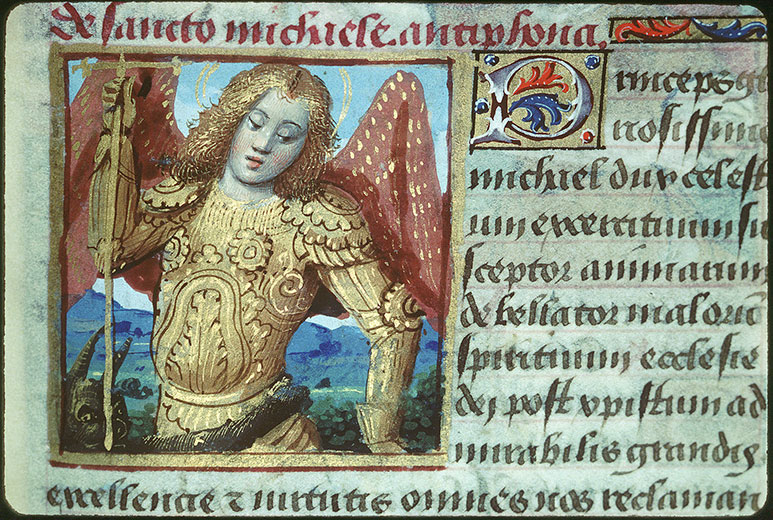 de sancto michaele. antiphona.
Princeps gl
riosissime
michael dux celest
ium exercituum su
sceptor animarum
debellator malorū
spirituum ecclesie
dei post xpistum ad
mirabilis grandis
excellencie ⁊ uirtutis omnes nos reclaman